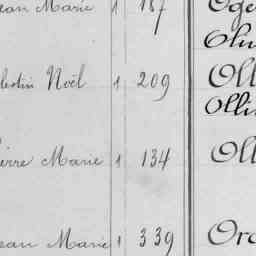 Jean Marie 1 187 Oge
Célestin Noël 1 209 Oll
Olli
Pierre Marie 1 134 Oll
Jean Marie 1 339 Oro